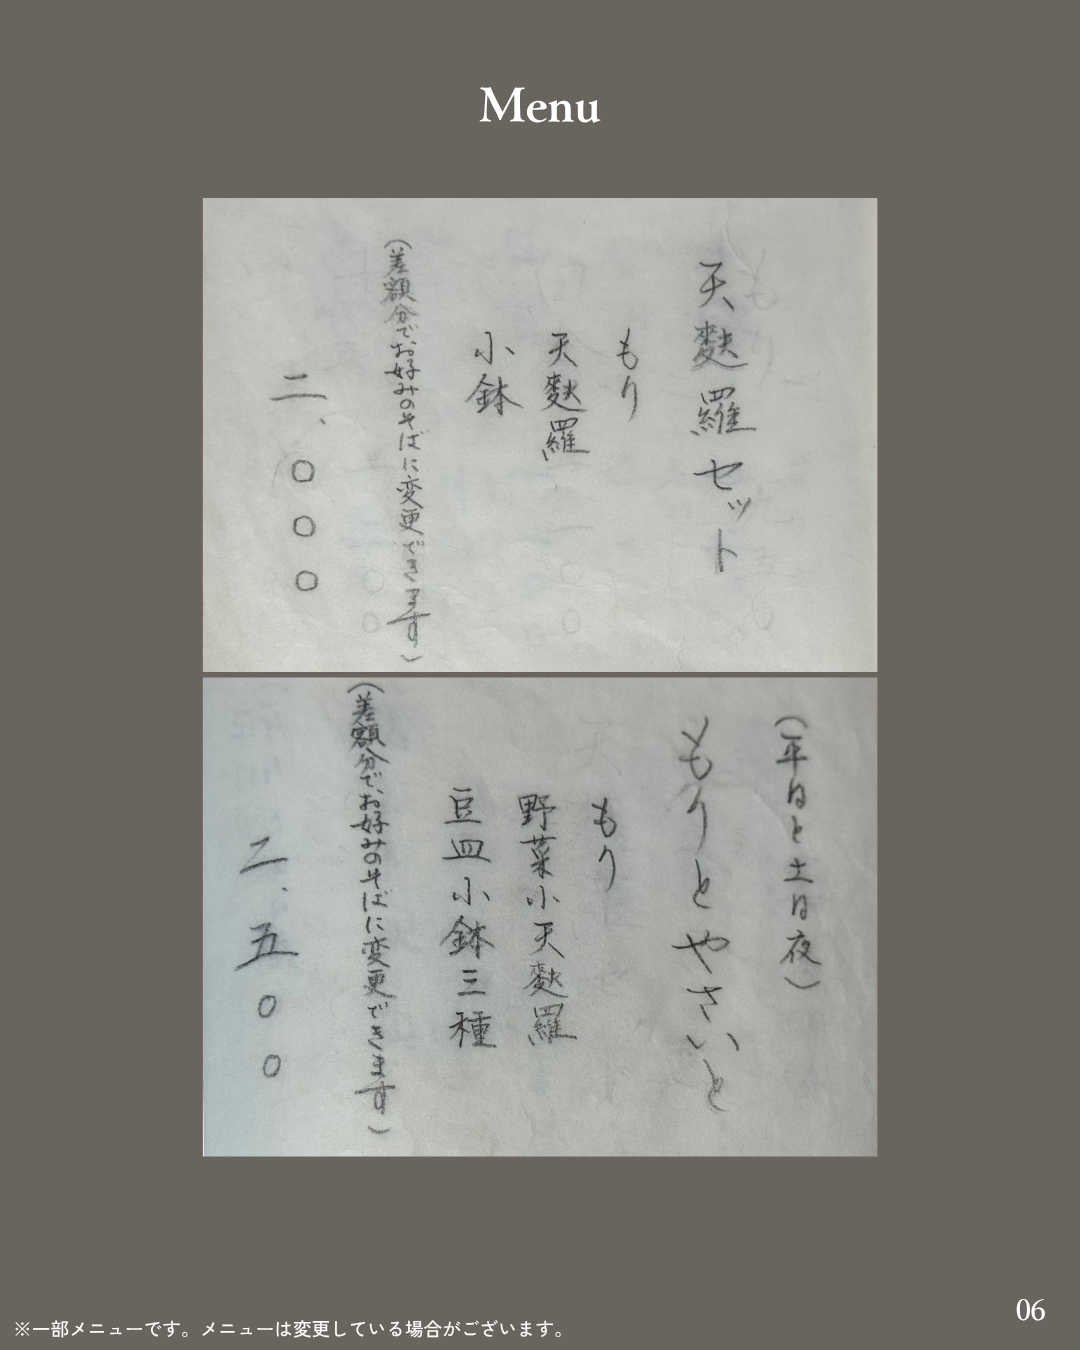 Menu
天麩羅セット
もり
天麩羅
小鉢
(差額分でお好みのそばに変更できます)
二、〇〇〇
(平日と土日夜)
もりとやさいと
もり
野菜小天麩羅
豆皿小鉢三種
(差額分で、お好みのそばに変更できます)
二、五〇〇
06
※一部メニューです。メニューは変更している場合がございます。